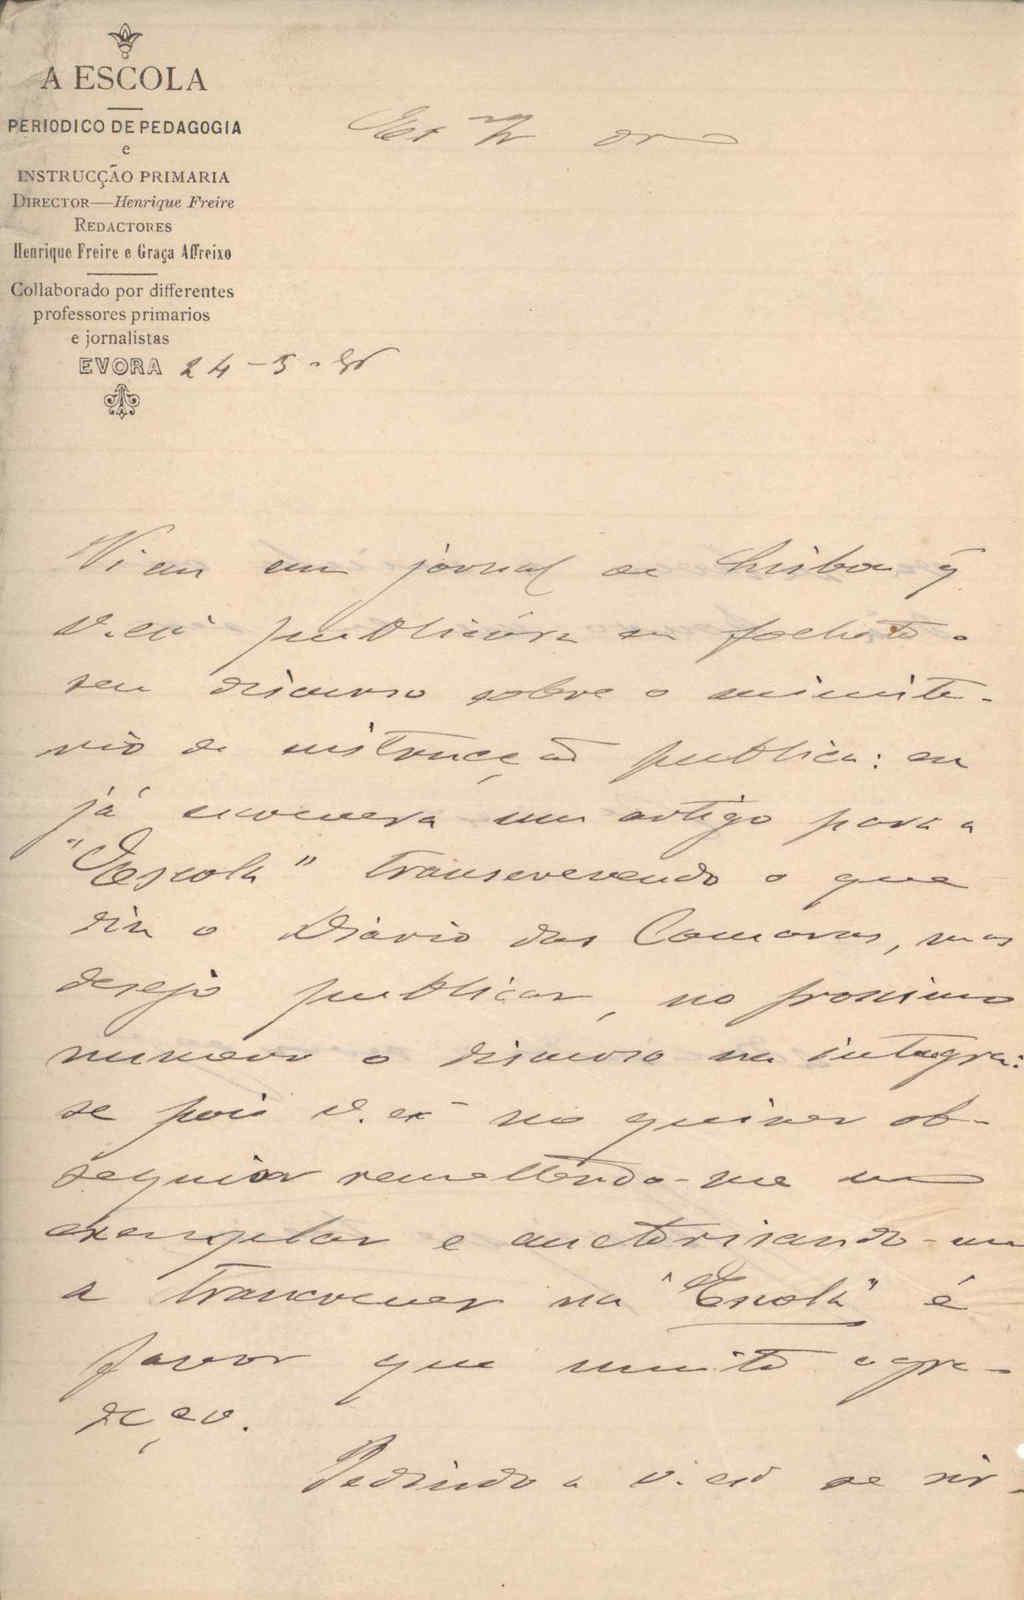 A ESCOLA
PERIODICO DE PEDAGOGIA
e
INSTRUCÇÃO PRIMARIA
DIRECTOR—Henrique Freire
REDACTORES
Henrique Freire e Graça Affreixo
Collaborado por differentes
professores primarios
e jornalistas
EVORA 24-5-
Vi em um jornal de Lisboa q̃
v. exª publicára em folheto o
seu discurso sobre o ministe-
rio de instrucção publica: eu
já escrevera um artigo para a
"Escola" transcrevendo o que
diz o Diario das Camaras, mas
desejo publicar, no proximo
numero o discurso na integra:
se pois v. exª me quizer ob-
sequiar remettendo-me um
exemplar e auctorisando-me
a transcrever na "Escola" é
favor que muito agra-
deço.
Pedindo a v. exª se sir-